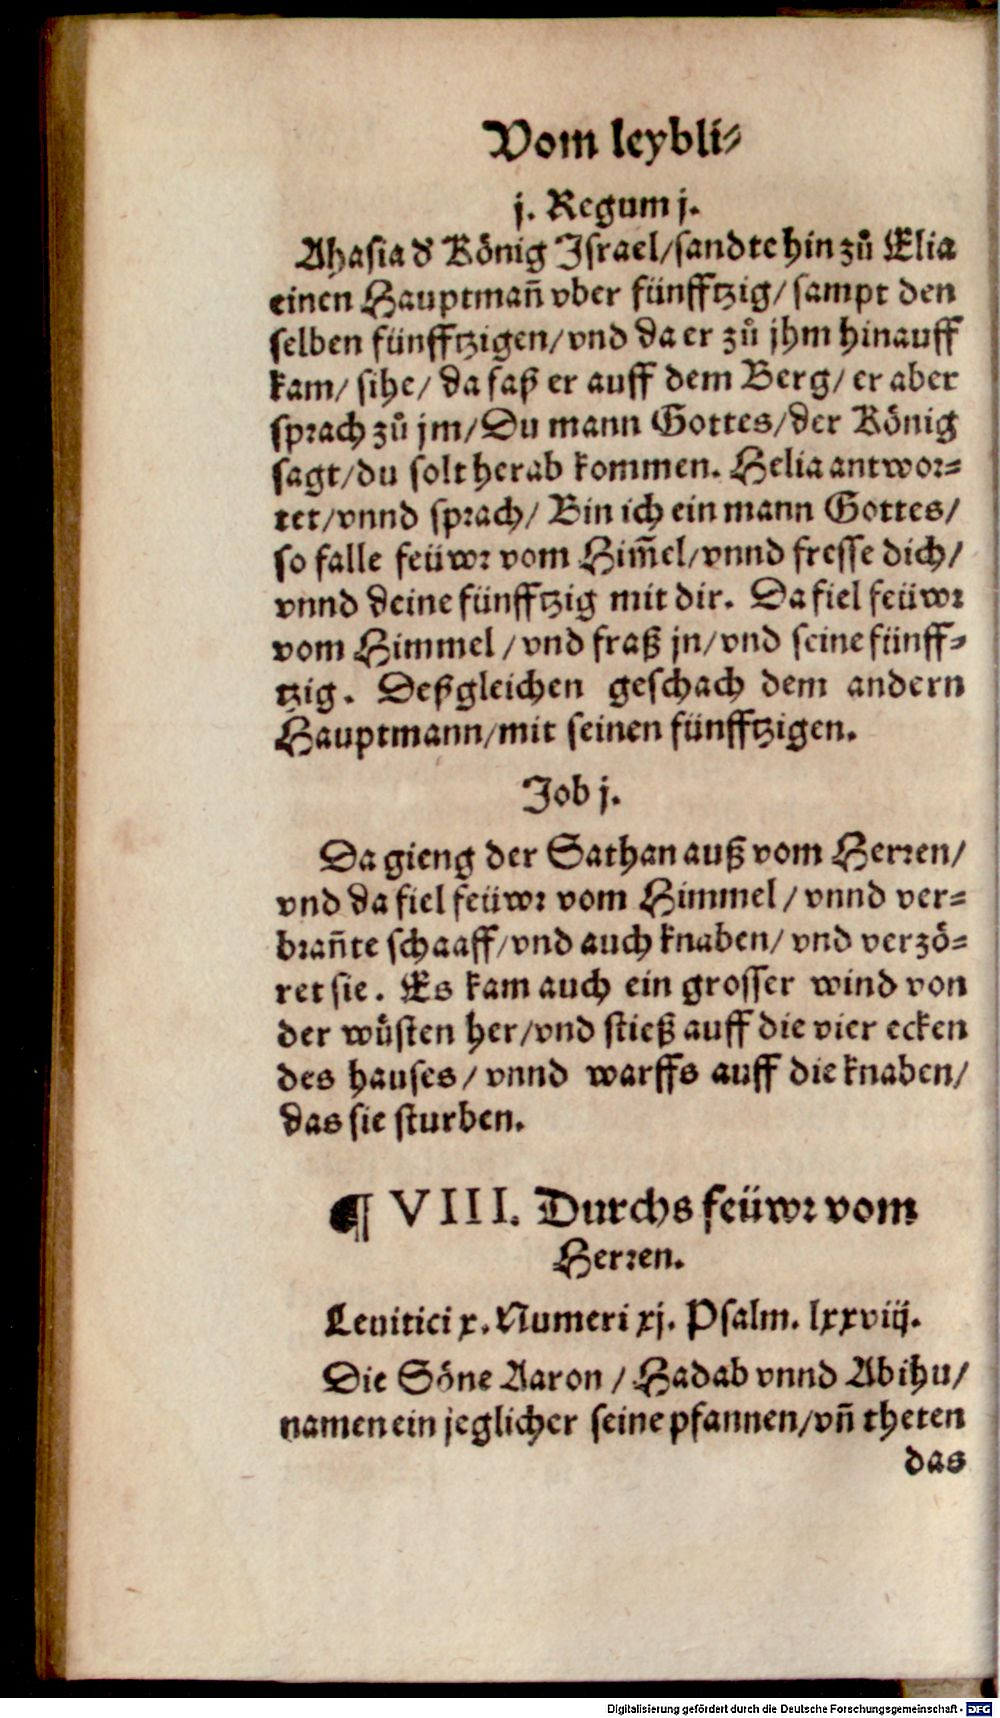 Vom leybli⸗
j. Regum j.
Ahasia d̕ König Israel/sandte hin zů Elia
einen Hauptmañ vber fünfftzig/ sampt den
selben fünfftzigen/vnd da er zů jhm hinauff
kam/ sihe/ da saß er auff dem Berg/ er aber
sprach zů jm/Du mann Gottes/der König
sagt/du solt herab kommen. Helia antwor⸗
tet/vnnd sprach/ Bin ich ein mann Gottes/
so falle feüwr vom Him̃el/vnnd fresse dich/
vnnd deine fünfftzig mit dir. Da fiel feüwr
vom Himmel /vnd fraß jn/vnd seine fünff⸗
tzig. Deßgleichen geschach dem andern
Hauptmann/mit seinen fünfftzigen.
Job j.
Da gieng der Sathan auß vom Herren/
vnd da fiel feüwr vom Himmel / vnnd ver⸗
brañte schaaff/vnd auch knaben/ vnd verzö⸗
ret sie. Es kam auch ein grosser wind von
der wüsten her/vnd stieß auff die vier ecken
des hauses/ vnnd warffs auff die knaben/
das sie sturben.
¶ VIII. Durchs feüwr vom
Herren.
Leuitici x. Numeri xj. Psalm. lxxviij.
Die Söne Aaron / Hadab vnnd Abihu/
namen ein jeglicher seine pfannen/vñ theten
das
Digitalisierung gefördert durch die Deutsche Forschungsgemeinschaft - DFG